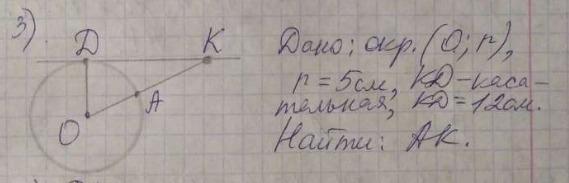 3).
Д K
A
O
Дано: окр. (O; r),
r = 5см, KД-каса-
тельная, KД = 12см.
Найти: AK.